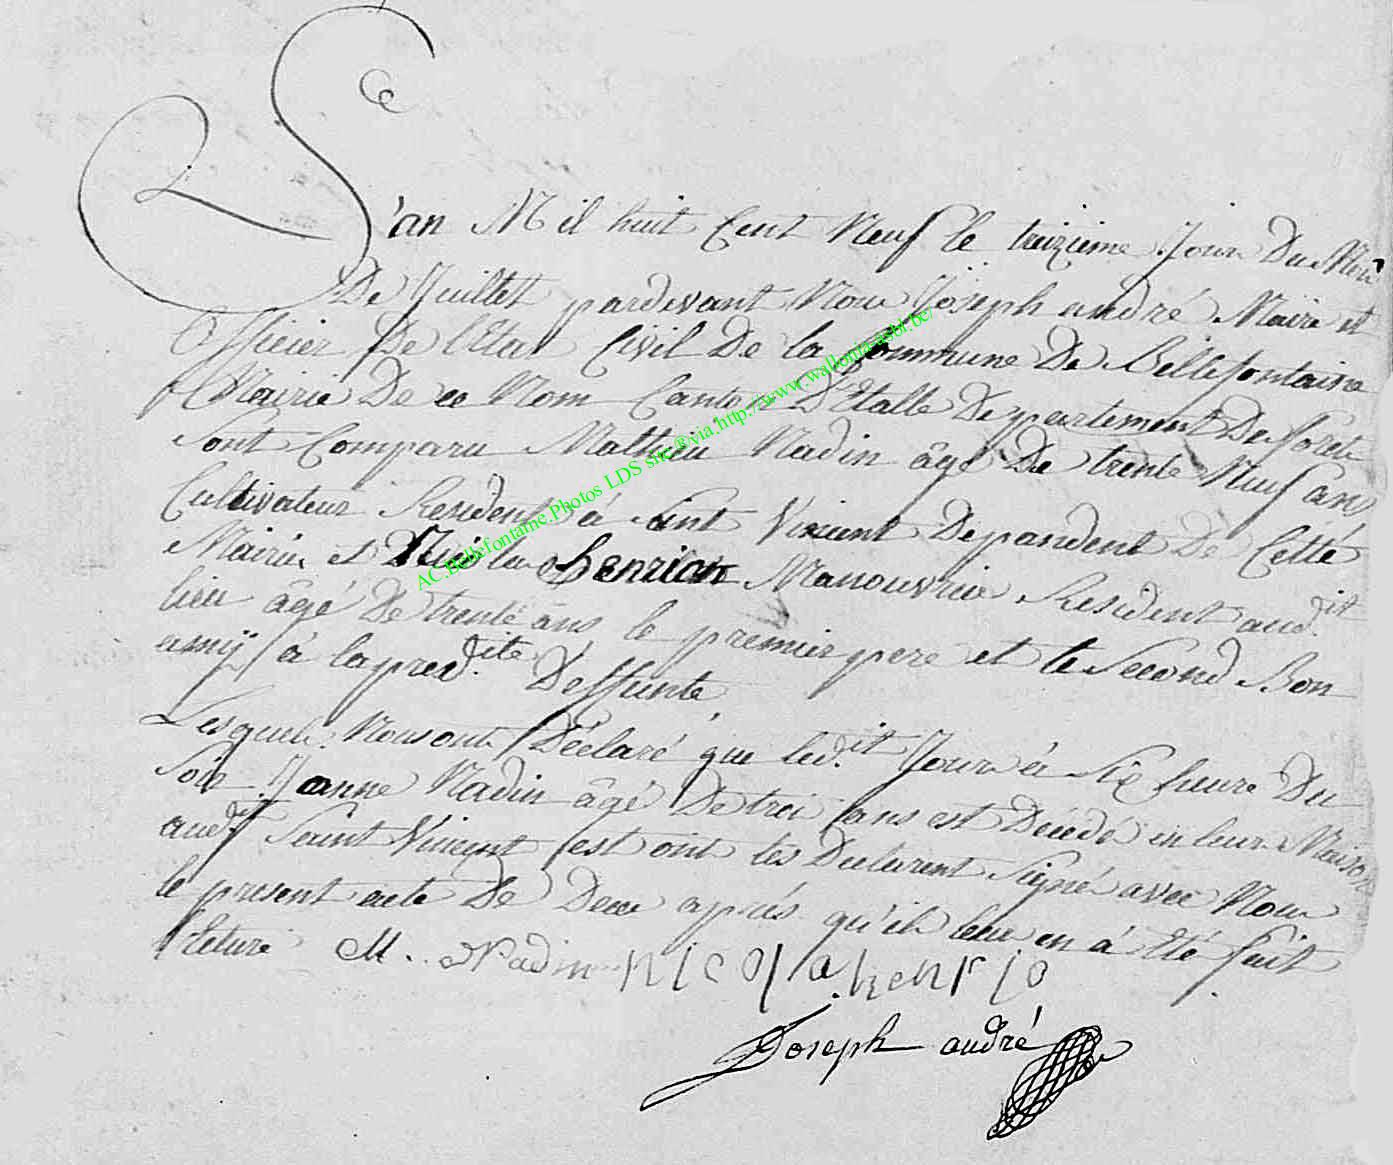 Ce
L'an Mil huit Cent Neuf le treizieme Jour Du Mois
De Juillet pardevant Nous Joseph andré Maire et
Officier De l'Etat Civil De la Commune De Bellefontaine
Mairie De ce Nom Canton D'Etalle Departement Des forêts
Sont Comparu Mathieu Nadin âgé De trente Neuf ans
Cultivateur Resident à Saint Vincent Dependent De Cette
Mairie et Nicolas henrion Manouvrie Resident aud.it
lieu âgé De trente ans le premier pere et le Second Bon
amÿ à la pred.ite Deffunte
Lesquels Nous ont Déclaré que led.it Jour à Six heure Du
Soir Janne Nadin âgé De troi ans est Decedé en leur Maison
aud.it Saint Vincent est ont les Declarent Signé avec Nous
le present acte De Deces aprés qu'ils leur en à Eté fait
leture M. Nadin nicola henrio
Joseph andré
AC.Bellefontaine.Photos LDS site®via.http://www.wallonia-asbl.be/